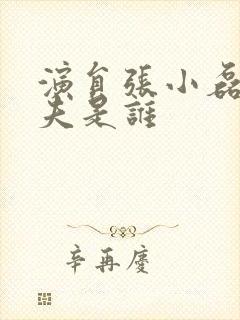 演員張小磊
夫是誰
辛再慶